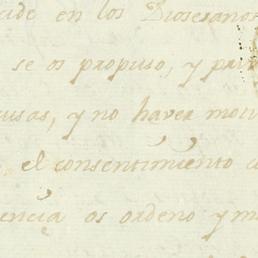 cide en los Diosesanos
se os propuso, y para
usas, y no haver moti
el consentimiento
encia os ordeno y m